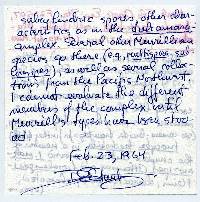 subcylindric spores, other char-
acteristics as in the dulcamara-
complex. Several other Merrill
species go there (e.g.,
), as well as several collec-
tions from the Pacific Northwest.
I cannot evaluate the different
members of the complex until
Merrill's types have been stud-
ied
Feb. 23, 1964